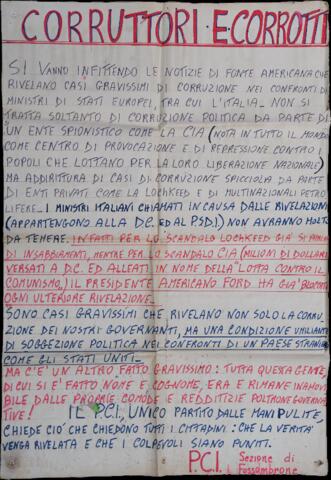 CORRUTTORI E CORROTTI
SI VANNO INFITTENDO LE NOTIZIE DI FONTE AMERICANA CHE
RIVELANO CASI GRAVISSIMI DI CORRUZIONE NEI CONFRONTI DI
MINISTRI DI STATI EUROPEI, TRA CUI L'ITALIA. NON SI
TRATTA SOLTANTO DI CORRUZIONE POLITICA DA PARTE DI
UN ENTE SPIONISTICO COME LA CIA (NOTA IN TUTTO IL MONDO
COME CENTRO DI PROVOCAZIONE E DI REPRESSIONE CONTRO I
POPOLI CHE LOTTANO PER LA LORO LIBERAZIONE NAZIONALE)
MA ADDIRITTURA DI CASI DI CORRUZIONE SPICCIOLA DA PARTE
DI ENTI PRIVATI COME LA LOCKHEED E DI MULTINAZIONALI PETRO
LIFERE. I MINISTRI ITALIANI CHIAMATI IN CAUSA DALLE RIVELAZIONI
(APPARTENGONO ALLA D.C. ED AL P.S.D.I) NON AVRANNO MOLTO
DA TEMERE. INFATTI PER LO SCANDALO LOCKHEED GIÀ SI PARLA
DI INSABBIAMENTI, MENTRE PER LO SCANDALO CIA (MILIONI DI DOLLARI
VERSATI A D.C. ED ALLEATI IN NOME DELLA "LOTTA CONTRO IL
COMUNISMO,,) IL PRESIDENTE AMERICANO FORD HA GIÀ BLOCCATO
OGNI ULTERIORE RIVELAZIONE.
SONO CASI GRAVISSIMI CHE RIVELANO NON SOLO LA CORRU
ZIONE DEI NOSTRI GOVERNANTI, MA UNA CONDIZIONE UMILIANTE
DI SOGGEZIONE POLITICA NEI CONFRONTI DI UN PAESE STRANIERO
COME GLI STATI UNITI.
MA C'È UN ALTRO FATTO GRAVISSIMO: TUTTA QUESTA GENTE,
DI CUI SI È FATTO NOME E COGNOME, ERA E RIMANE INAMOVI
BILE DALLE PROPRIE COMODE E REDDITIZIE POLTRONE GOVERNA
TIVE!
IL P.C.I., UNICO PARTITO DALLE MANI PULITE,
CHIEDE CIÒ CHE CHIEDONO TUTTI I CITTADINI: CHE LA VERITÀ
VENGA RIVELATA E CHE I COLPEVOLI SIANO PUNITI.
P.C.I. Sezione di
Fossombrone